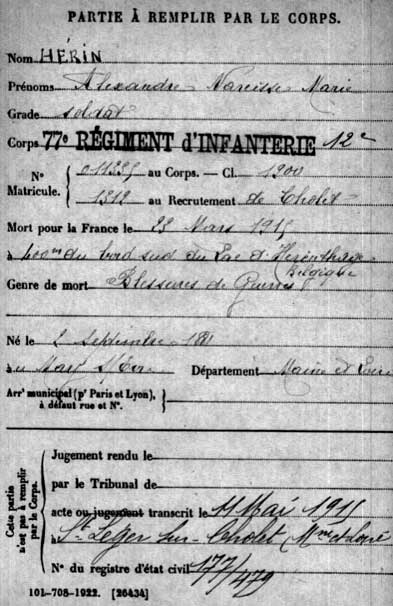 PARTIE À REMPLIR PAR LE CORPS.
Nom HÉRIN
Prénoms Alexandre Narcisse Marie
Grade soldat
Corps 77e RÉGIMENT d'INFANTERIE 12e
N° au Corps. — Cl. 1900
Matricule. 1312 au Recrutement de Cholet
Mort pour la France le 23 Mars 1915
à 400m du bord sud du Lac d'Herenthage
Belgique
Genre de mort Blessures de Guerre
Né le 2 Septembre
à Département Maine et Loire
Arrt municipal (pr Paris et Lyon),
à défaut rue et N°.
Cette partie
n'est pas à remplir
par le Corps.
Jugement rendu le
par le Tribunal de
acte ou jugement transcrit le 11 Mai 1915
à St Léger sur Cholet Mne et Loire
N° du registre d'état civil 177/479
101-708-1922. [26434]